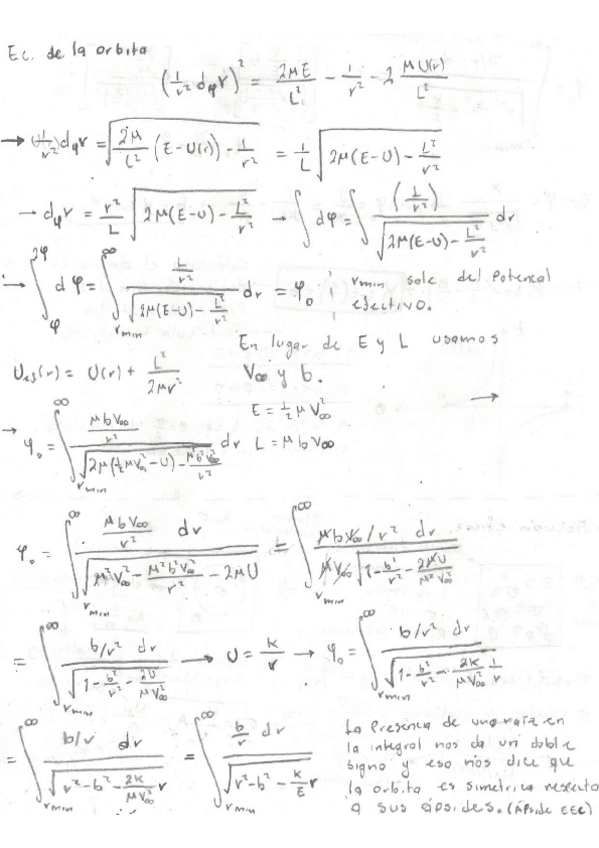 Ec. de la orbita
(1/r² dφr)² = 2ME/L² - 1/r² - 2 MU(r)/L²
→ (1/r²)dφr = √(2M/L² (E-U(r)) - 1/r²) = 1/L √(2M(E-U) - L²/r²)
→ dφr = r²/L √(2M(E-U) - L²/r²) → ∫dφ = ∫ (1/r²)/√(2M(E-U) - L²/r²) dr
→ ∫_φ^{2φ} dφ = ∫_{rmin}^∞ (L/r²)/√(2M(E-U) - L²/r²) dr = φ₀ ; rmin sale del Potencal
efectivo.
En lugar de E y L usamos
U_ef(r) = U(r) + L²/2Mr² V∞ y b.
E = ½ μ V∞² →
→ φ₀ = ∫_{rmin}^∞ (μbV∞/r²)/√(2μ(½μV∞² - U) - μ²b²V∞²/r²) dr L = μbV∞
φ₀ = ∫_{rmin}^∞ (μbV∞/r² dr)/√(μ²V∞² - μ²b²V∞²/r² - 2μU) = ∫_{rmin}^∞ (μbV∞/r² dr)/(μV∞ √(1 - b²/r² - 2μU/μ²V∞²))
= ∫_{rmin}^∞ (b/r² dr)/√(1 - b²/r² - 2U/μV∞²) → U = k/r → φ₀ = ∫_{rmin}^∞ (b/r² dr)/√(1 - b²/r² - 2k/μV∞² 1/r)
= ∫_{rmin}^∞ (b/r dr)/√(r² - b² - 2k/μV∞² r) = ∫_{rmin}^∞ (b/r dr)/√(r² - b² - k/E r)
La Presencia de una raíz en
la integral nos da un doble
signo y eso nos dice que
la orbita es simetrica respecto
a sus ápsides. (Ápside